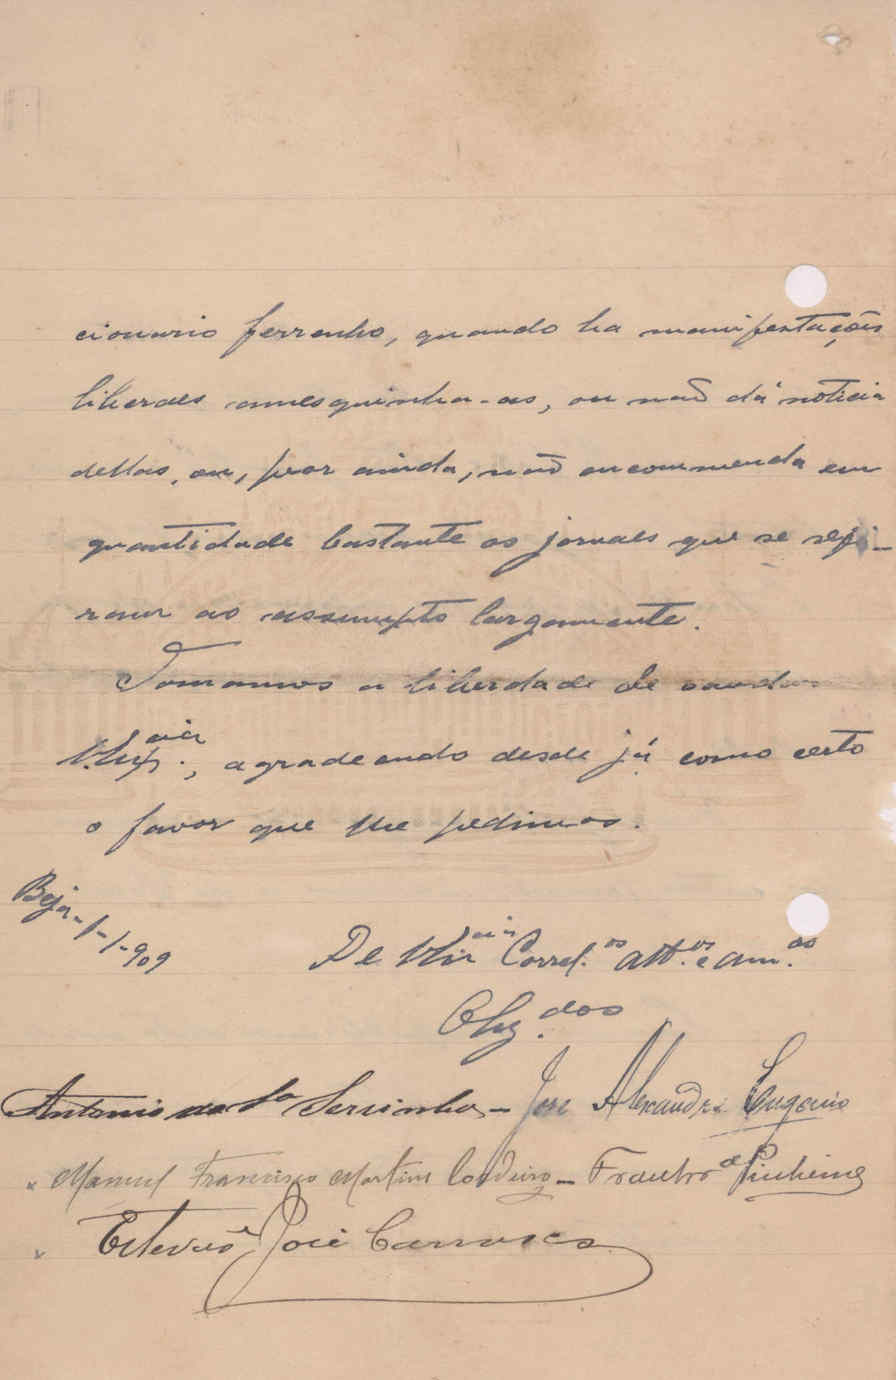 cionario ferrenho, quando ha manifestações
liberaes amesquinha-as, ou não dá noticia
dellas, ou, peor ainda, não encommenda em
quantidade bastante os jornaes que se refi-
ram ao assumpto largamente.
Tomamos a liberdade de saudar
, agradecendo desde já como certo
o favor que lhe pedimos.
Beja-1-1-909
De Correl.os att.os e am.os
Obg.dos
Antonio da Serrinha - José Alexandre Eugenio
Manuel Francisco Martins Cordeiro - Pinheiro
Estevão José Carrasco